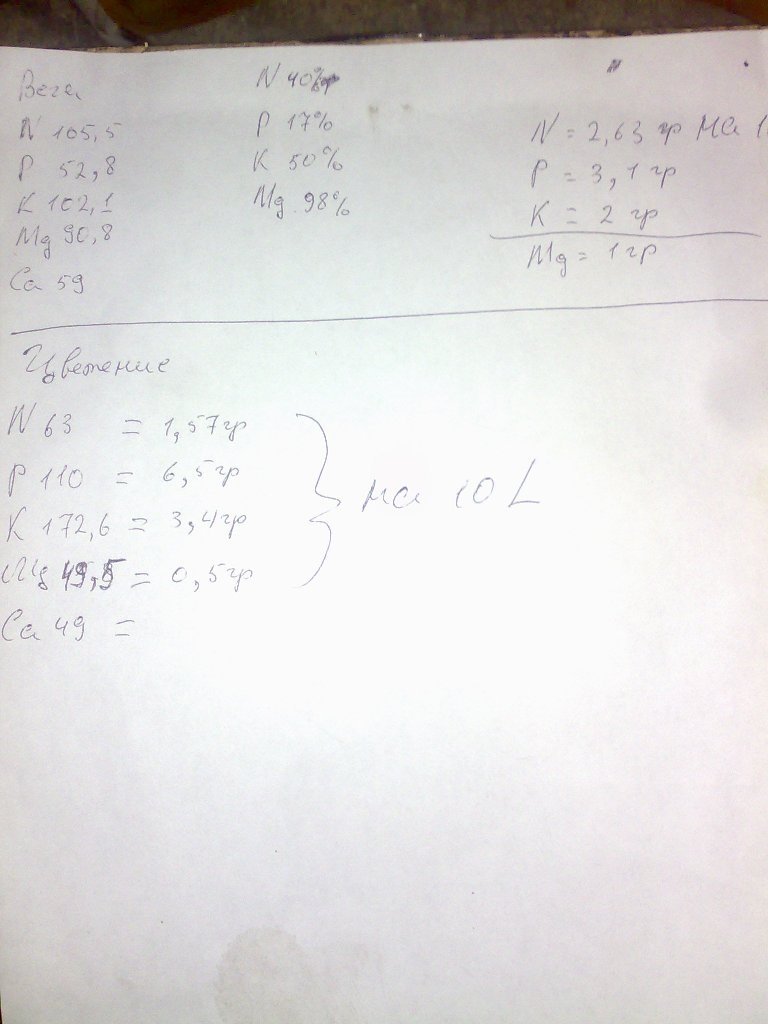 Вега
N 105,5
P 52,8
K 102,1
Mg 90,8
Ca 59
N 40%
P 17%
K 50%
Mg 98%
N = 2,63 гр на
P = 3,1 гр
K = 2 гр
Mg = 1 гр
Цветение
N 63 = 1,57 гр
P 110 = 6,5 гр
K 172,6 = 3,4 гр
Mg 49,5 = 0,5 гр
Ca 49 =
на 10 L